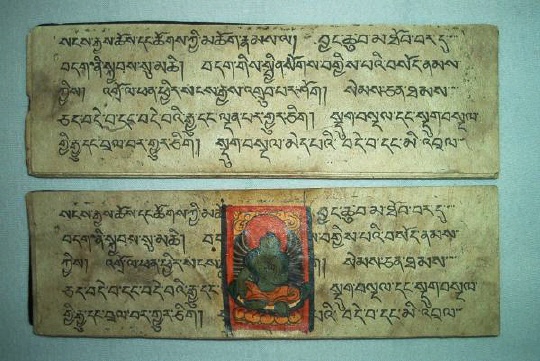 སངས་རྒྱས་ཆོས་དང་ཚོགས་ཀྱི་མཆོག་རྣམས་ལ། བྱང་ཆུབ་མ་ཐོབ་བར་དུ་
བདག་ནི་སྐྱབས་སུ་མཆི། བདག་གིས་སྦྱིན་སོགས་བགྱིས་པའི་བསོད་ནམས་
ཀྱིས། འགྲོ་ལ་ཕན་ཕྱིར་སངས་རྒྱས་འགྲུབ་པར་ཤོག། སེམས་ཅན་ཐམས་
ཅད་བདེ་བ་དང་བདེ་བའི་རྒྱུ་དང་ལྡན་པར་གྱུར་ཅིག། སྡུག་བསྔལ་དང་སྡུག་བསྔལ་
གྱི་རྒྱུ་དང་བྲལ་བར་གྱུར་ཅིག། སྡུག་བསྔལ་མེད་པའི་བདེ་བ་དང་མི་འབྲལ་
སངས་རྒྱས་ཆོས་དང་ཚོགས་ཀྱི་ བྱང་ཆུབ་མ་ཐོབ་བར་དུ་
བདག་ནི་སྐྱབས་སུ་མཆི། བགྱིས་པའི་བསོད་ནམས་
ཀྱིས། འགྲོ་ལ་ཕན་ཕྱིར་སངས་ སེམས་ཅན་ཐམས་
ཅད་བདེ་བ་དང་བདེ་བའི་རྒྱུ་དང་ སྡུག་བསྔལ་དང་སྡུག་བསྔལ་
གྱི་རྒྱུ་དང་བྲལ་བར་གྱུར་ཅིག། པའི་བདེ་བ་དང་མི་འབྲལ་